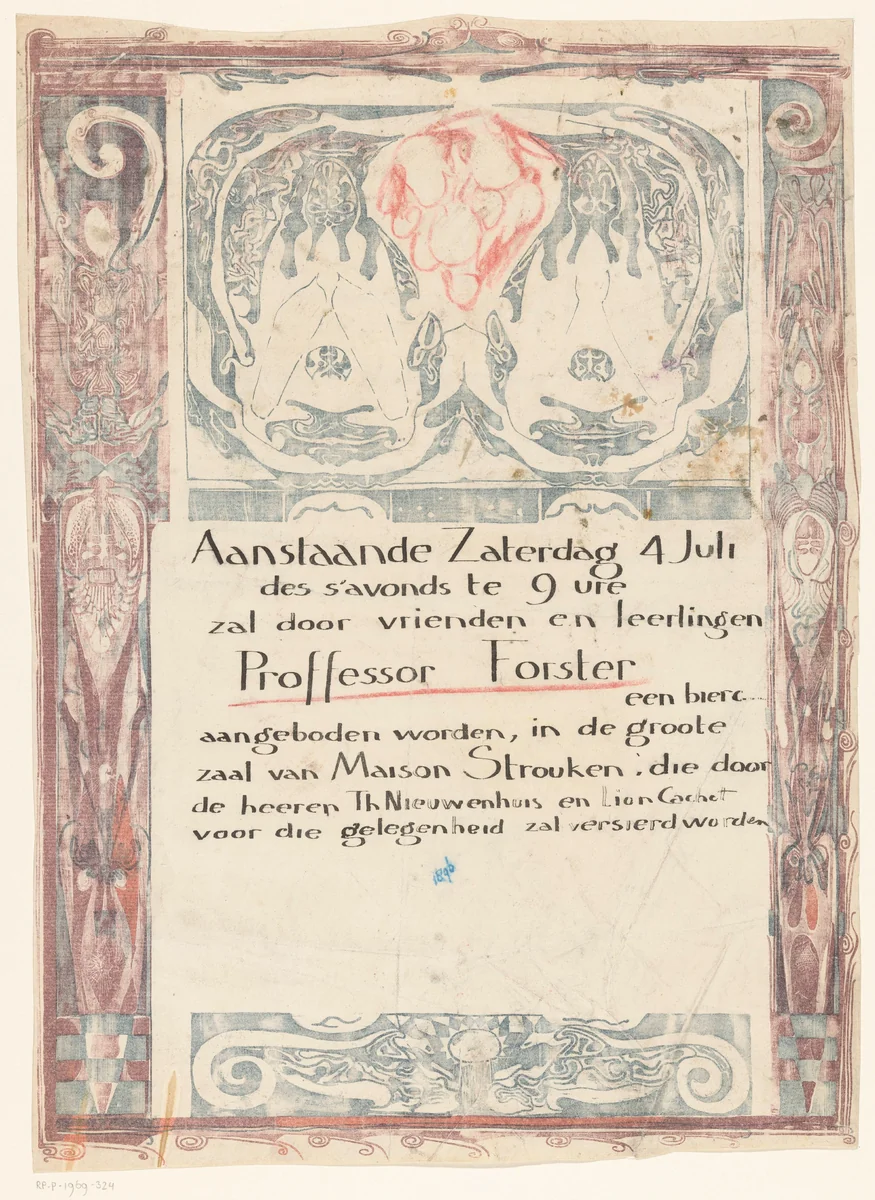 Aanstaande Zaterdag 4 Juli
des s'avonds te 9 ure
zal door vrienden en leerlingen
Proffessor Forster
een
aangeboden worden, in de groote
zaal van Maison Strouken : die door
de heeren Th Nieuwenhuis en Lion Cachet
voor die gelegenheid zal versierd worden
1896
RP-P-1969-324